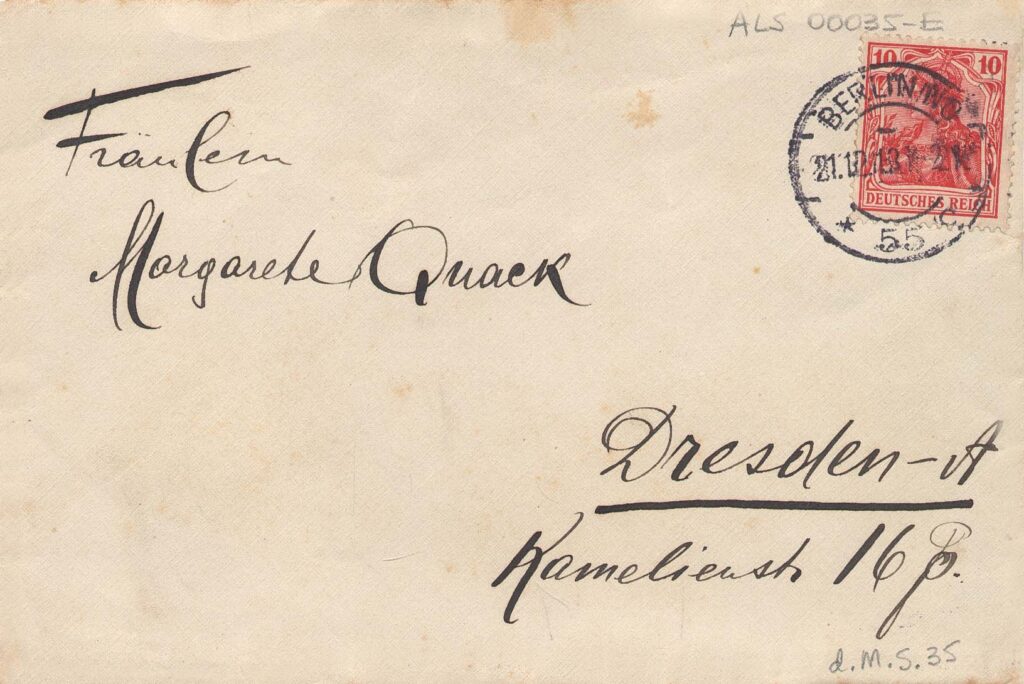 ALS 00035-E
10 10
BERLIN N.O.
21.12.13
DEUTSCHES REICH
* 55 c.
Fräulein
Margarete Quack
Dresden-A
Kamelienstr 16 p.
d.M.S.35